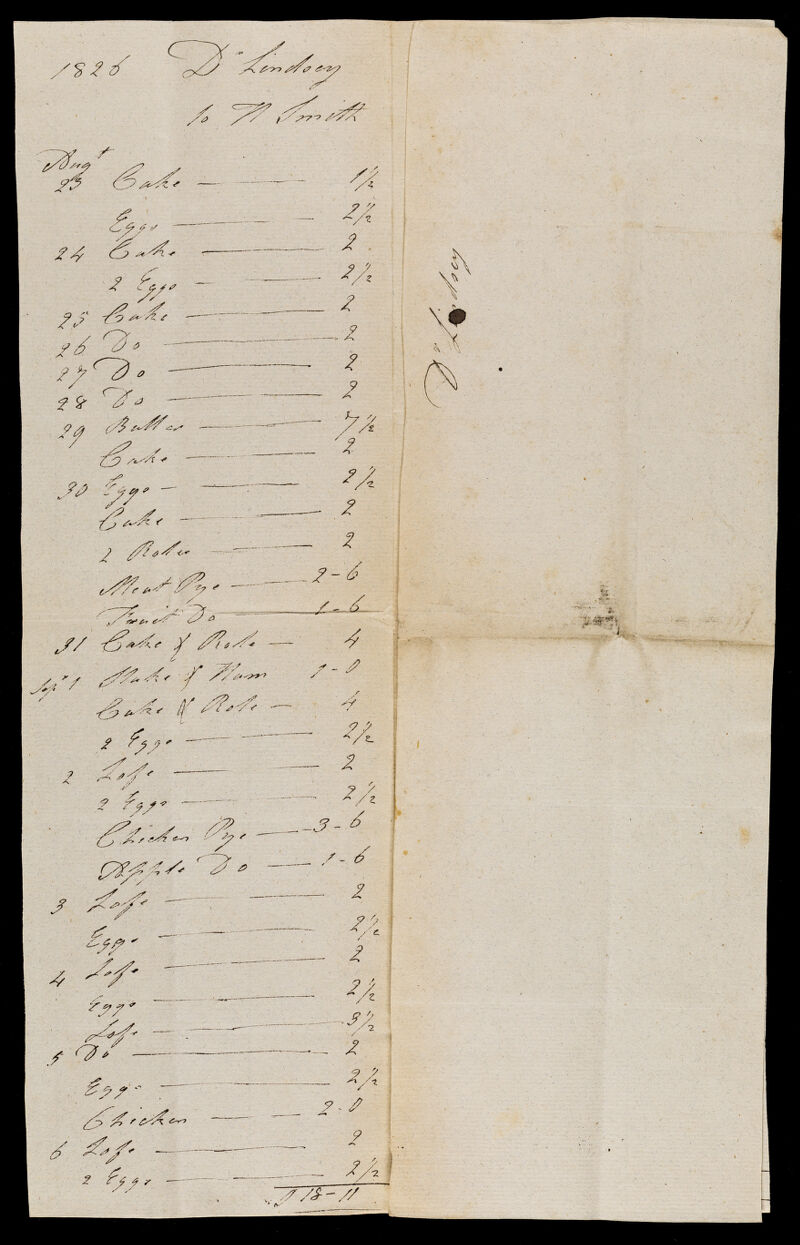 1826 Dr Lindsey
to H Smith
Augt
23 Cake — 1 1/2
Eggs — 2 1/2
24 Cake — 2
2 Eggs — 2 1/2
25 Cake — 2
26 Do — 2
27 Do — 2
28 Do — 2
29 Butter — 7 1/2
Cake — 2
30 Eggs — 2 1/2
Cake — 2
2 Roles — 2
Meat Pye — 2-6
Fruit Do — 1-6
31 Cake & Role — 4
Sepr 1 & Ham 1-0
Cake & Role — 4
2 Eggs — 2 1/2
2 Lofe — 2
2 Eggs — 2 1/2
Chicken Pye — 3-6
Apple Do — 1-6
3 Lofe — 2
Eggs — 2 1/2
4 Lofe — 2
Eggs — 2 1/2
Lofe — 3 1/2
5 Do — 2
Eggs — 2 1/2
Chicken — 2-0
6 Lofe — 2
2 Eggs — 2 1/2
18-11
Dr Lindsey